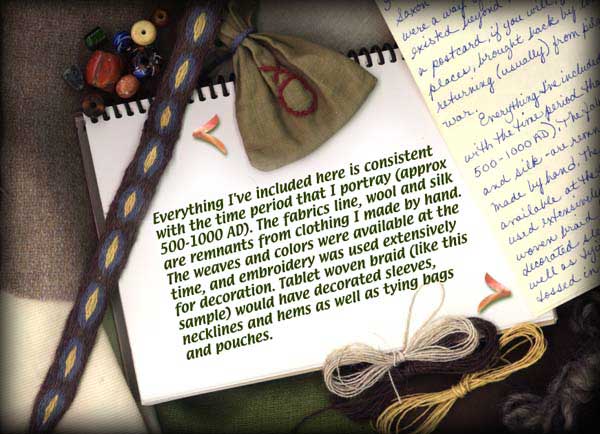 Everything I've included here is consistent
with the time period that I portray (approx
500-1000 AD). The fabrics line, wool and silk
are remnants from clothing I made by hand.
The weaves and colors were available at the
time, and embroidery was used extensively
for decoration. Tablet woven braid (like this
sample) would have decorated sleeves,
necklines and hems as well as tying bags
and pouches.
Saxon
were a way
existed beyond
a postcard, if you will,
places, brought back by
returning (usually) from
war.
Everything I've included
with the time period
500-1000 AD). The
and silk - are
made by hand. The
available at the
used extensively
woven braid
decorated
well as
tossed in